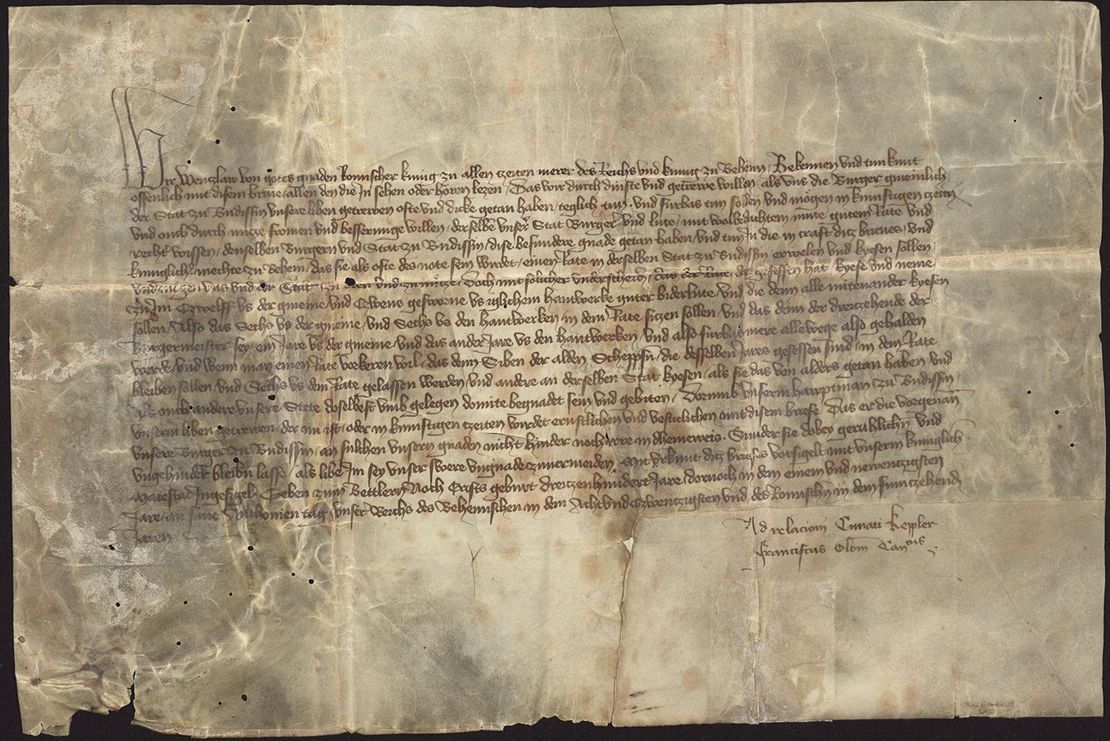 Wir Wenzlaw von gotes gnaden Romischer kunig zu allen zeiten merer des Reichs und kunig zu Behem Bekennen und tun kunt
offenlich mit disem brive allen den die in sehen oder horen lezen Das wir durch dinste und getrewe willen als uns die Burger gmeinlich
der Stat zu Budissin unsere liben getrewen ofte und dicke getan haben teglich tun und furbas tun sollen und mögen in kunftigen zeiten
und ouch durch nutze fromen und besserunge willen derselbe unser Stat Burger und lute mit wolbedachtem mute gutem Rate und
recht wissen denselben Burgern und Stat zu Budissin dise besundere gnade getan haben und tun in die in craft ditz brieves und
kuniglicher mechte zu Behem das sie als ofte des note sein wirdet einen Rate in derselben Stat zu Budissin erwelen und kysen sollen
und mugen uns und der Stat zu eren und zu nutze Doch mit sölicher underscheid das der Rate der gesessen hat kyese und neme
zu im Czwelff us der gmeine und Czwene gesworne us iglichem hantwerke guter biderlute und die denn alle mitenander kyesen
sollen Also das Sechs us der gmeine und Sechs us den hantwerken in dem Rate siczen sollen und das denn der dreczehende der
Burgermeister sey ein Jare us der gmeine und das ander Jare us den hantwerken und also furbas mere allewege also gehalden
werde und wenn man einen Rate vorkeren wil das denn Siben der alden Scheppfen die desselben Jares gesessen sind in dem Rate
bleiben sollen und Sechs us dem Rate gelassen werden und andere an derselben Stat kyesen als sie das von alders getan haben und
als ouch andere unsere Stete doselbest umb gelegen domite begnadet sein und gebiten Dorumb unserm hawptman zu Budissin
unserm liben getrewen der nu ist oder in kunftigen zeiten wirdet ernstlichen und vesticlichen mit disem brieve Das er die vorgenan
unsere Burger zu Budissin an sulchen unsern gnaden nicht hinder noch irre in dheinerweis Sunder sie dobey geruhlichen und
ungehindert bleiben lasse als libe im sey unser swere ungnade zuvermeiden Mit Urkunt ditz brieves vorsigelt mit unserm kuniglich
Maiestad Ingesigel Geben zum Bettlern Noch Crists geburt Dreutzenhundert Jare dornoch in dem einem und newentzigsten
Jare an sant tag unser Reiche des Behemischen in dem Acht und czwentzigsten und des Romischen in dem funtzehend
Jaren
Ad relacionem Cunati Kepler
Franciscus Olom Canonicus